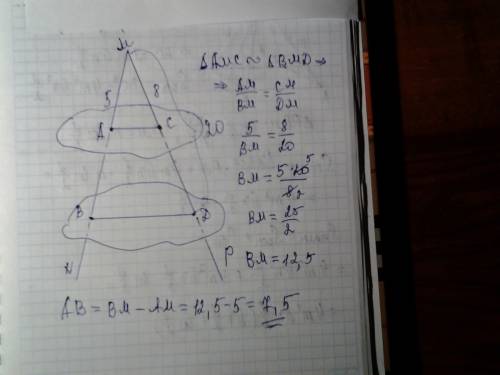 M
5
8
A
C
20
B
D
N
P
ΔAMC ~ ΔBMD ⇒
⇒ AM/BM = CM/DM
5/BM = 8/20
BM = 5·20⁵/8₂
BM = 25/2
BM = 12,5
AB = BM − AM = 12,5 − 5 = 7,5